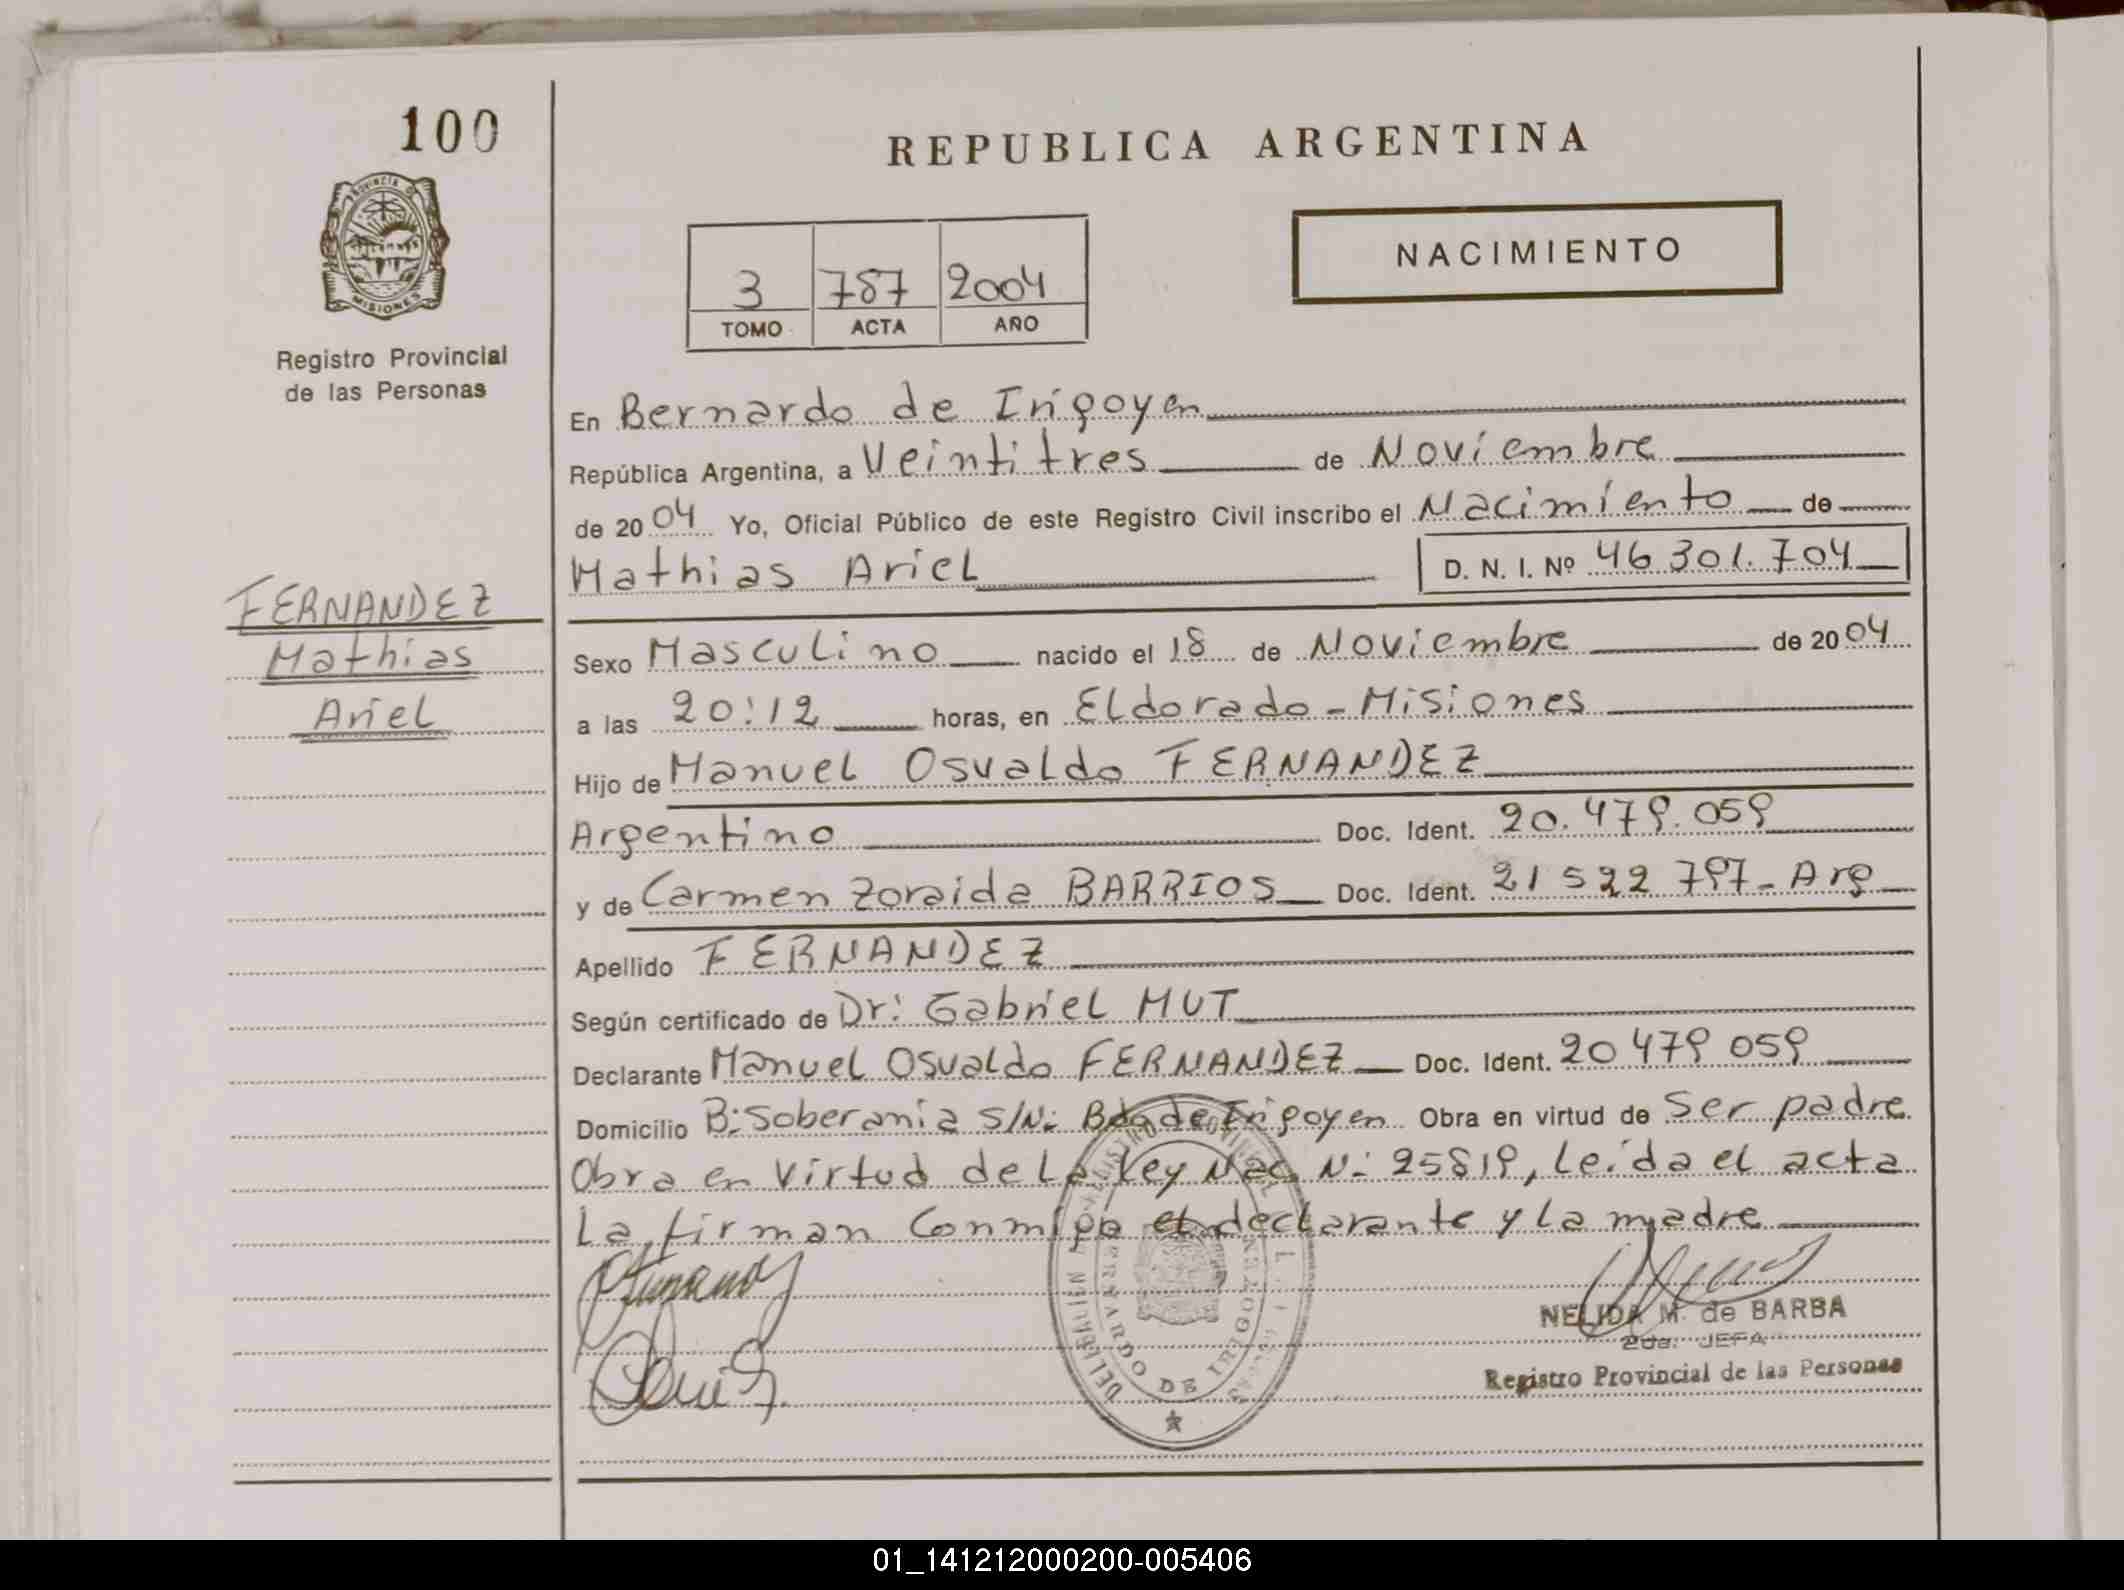 100
REPUBLICA ARGENTINA
PROVINCIA DE
MISIONES
NACIMIENTO
3 787 2004
TOMO ACTA AÑO
Registro Provincial
de las Personas
En Bernardo de Irigoyen
República Argentina, a Veintitres de Noviembre
de 2004 Yo, Oficial Público de este Registro Civil inscribo el Nacimiento de
Mathias Ariel D. N. I. Nº 46 301.704
FERNANDEZ
Mathias
Ariel
Sexo Masculino nacido el 18 de Noviembre de 2004
a las 20:12 horas, en Eldorado - Misiones
Hijo de Manuel Osvaldo FERNANDEZ
Argentino Doc. Ident. 20.479.059
y de Carmen Zoraida BARRIOS Doc. Ident. 21 522 797 - Arg
Apellido FERNANDEZ
Según certificado de Dr: Gabriel MUT
Declarante Manuel Osvaldo FERNANDEZ Doc. Ident. 20 479 059
Domicilio B: Soberania S/N: Bdo de Irigoyen Obra en virtud de Ser padre
Obra en virtud de la Ley Nac. N: 25819, Leida el acta
La firman conmigo el declarante y la madre
NELIDA M. de BARBA
2da. JEFA
Registro Provincial de las Personas
BERNARDO DE IRIGOYEN
01_141212000200-005406